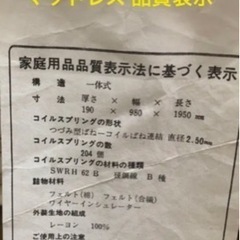 マットレス 品質表示
家庭用品品質表示法に基づく表示
構造 一体式
寸法 厚さ × 幅 × 長さ
190 × 980 × 1950 mm
コイルスプリングの形状
つづみ型ばねーコイルばね連結 直径2.50mm
コイルスプリングの数
204 個
コイルスプリングの材料の種類
SWRH 62 B 硬鋼線 B 種
詰物材料
フェルト(綿) フェルト(合繊)
ワイヤーインシュレーター
外装生地の組成
レーヨン 100%
ご使用上の注意